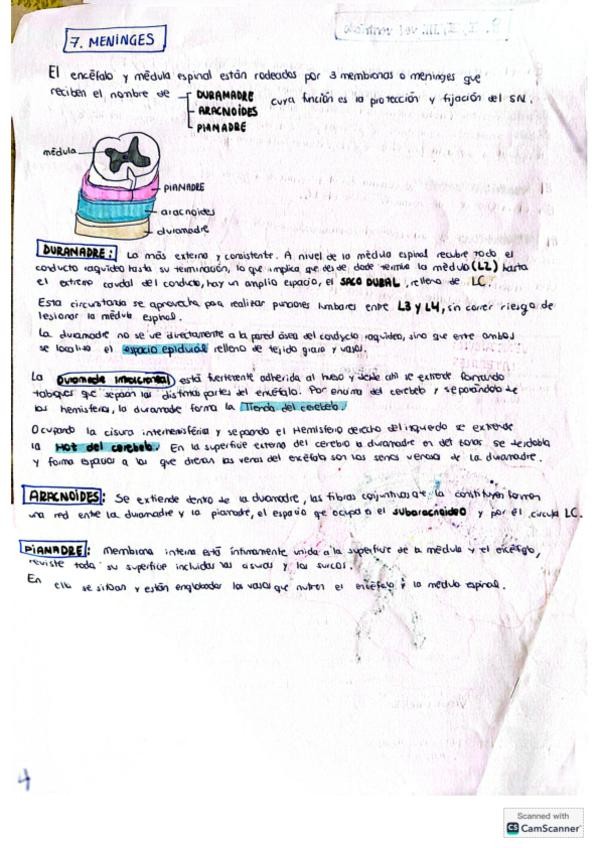 7. MENINGES
El encéfalo y médula espinal están rodeados por 3 membranas o meninges que
reciben el nombre de DURAMADRE cuya función es la protección y fijación del SN.
ARACNOIDES
PIAMADRE
médula
PIAMADRE
aracnoides
duramadre
DURAMADRE: La más externa y consistente. A nivel de la médula espinal recubre todo el
conducto raquídeo hasta su terminación, lo que implica que desde donde termina la médula (L2) hasta
el extremo caudal del conducto, hay un amplio espacio, el SACO DURAL, relleno de LC.
Esta circunstancia se aprovecha para realizar punciones lumbares entre L3 y L4, sin correr riesgo de
lesionar la médula espinal.
La duramadre no se ve directamente a la pared ósea del conducto raquídeo, sino que entre ambos
se localiza el espacio epidural relleno de tejido graso y vasos.
La Duramadre intracraneal está fuertemente adherida al hueso y desde allí se extiende formando
tabiques que separan las distintas partes del encéfalo. Por encima del cerebelo y separándolo de
los hemisferios, la duramadre forma la Tienda del cerebelo.
Ocupando la cisura interhemisférica y separando el Hemisferio derecho del izquierdo se extiende
la Hoz del cerebelo. En la superficie externa del cerebro la duramadre en det zonas se desdobla
y forma espacios a los que drenan las venas del encéfalo son los senos venosos de la duramadre.
ARACNOIDES: Se extiende dentro de la duramadre, las fibras conjuntivas que la constituyen forman
una red entre la duramadre y la piamadre, el espacio que ocupa el subaracnoideo y por él circula LC.
PIAMADRE: Membrana interna está íntimamente unida a la superficie de la médula y el encéfalo,
reviste toda su superficie incluidas las cisuras y los surcos.
En ella se sitúan y están englobados los vasos que nutren el encéfalo y la médula espinal.
4
Scanned with
CS CamScanner